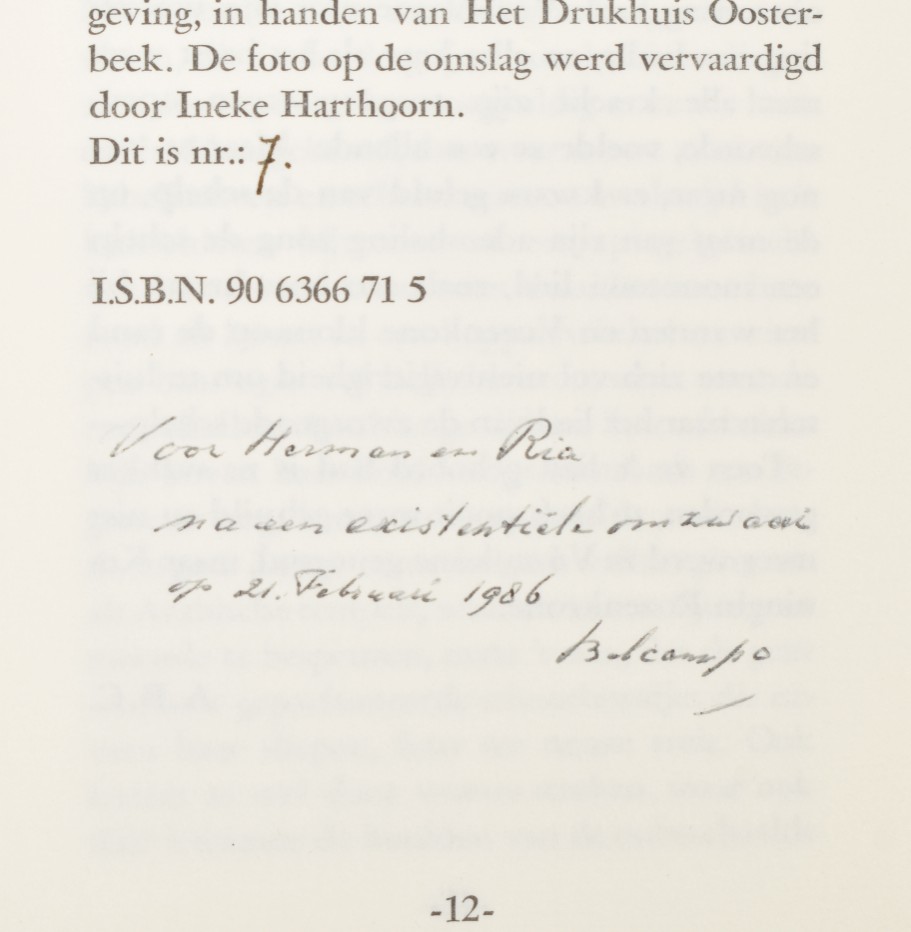 geving, in handen van Het Drukhuis Ooster-
beek. De foto op de omslag werd vervaardigd
door Ineke Harthoorn.
Dit is nr.: 7.
I.S.B.N. 90 6366 71 5
Voor Herman en Ria
na een existentiële omzwaai
op 21. Februari 1986
Belcampo
-12-